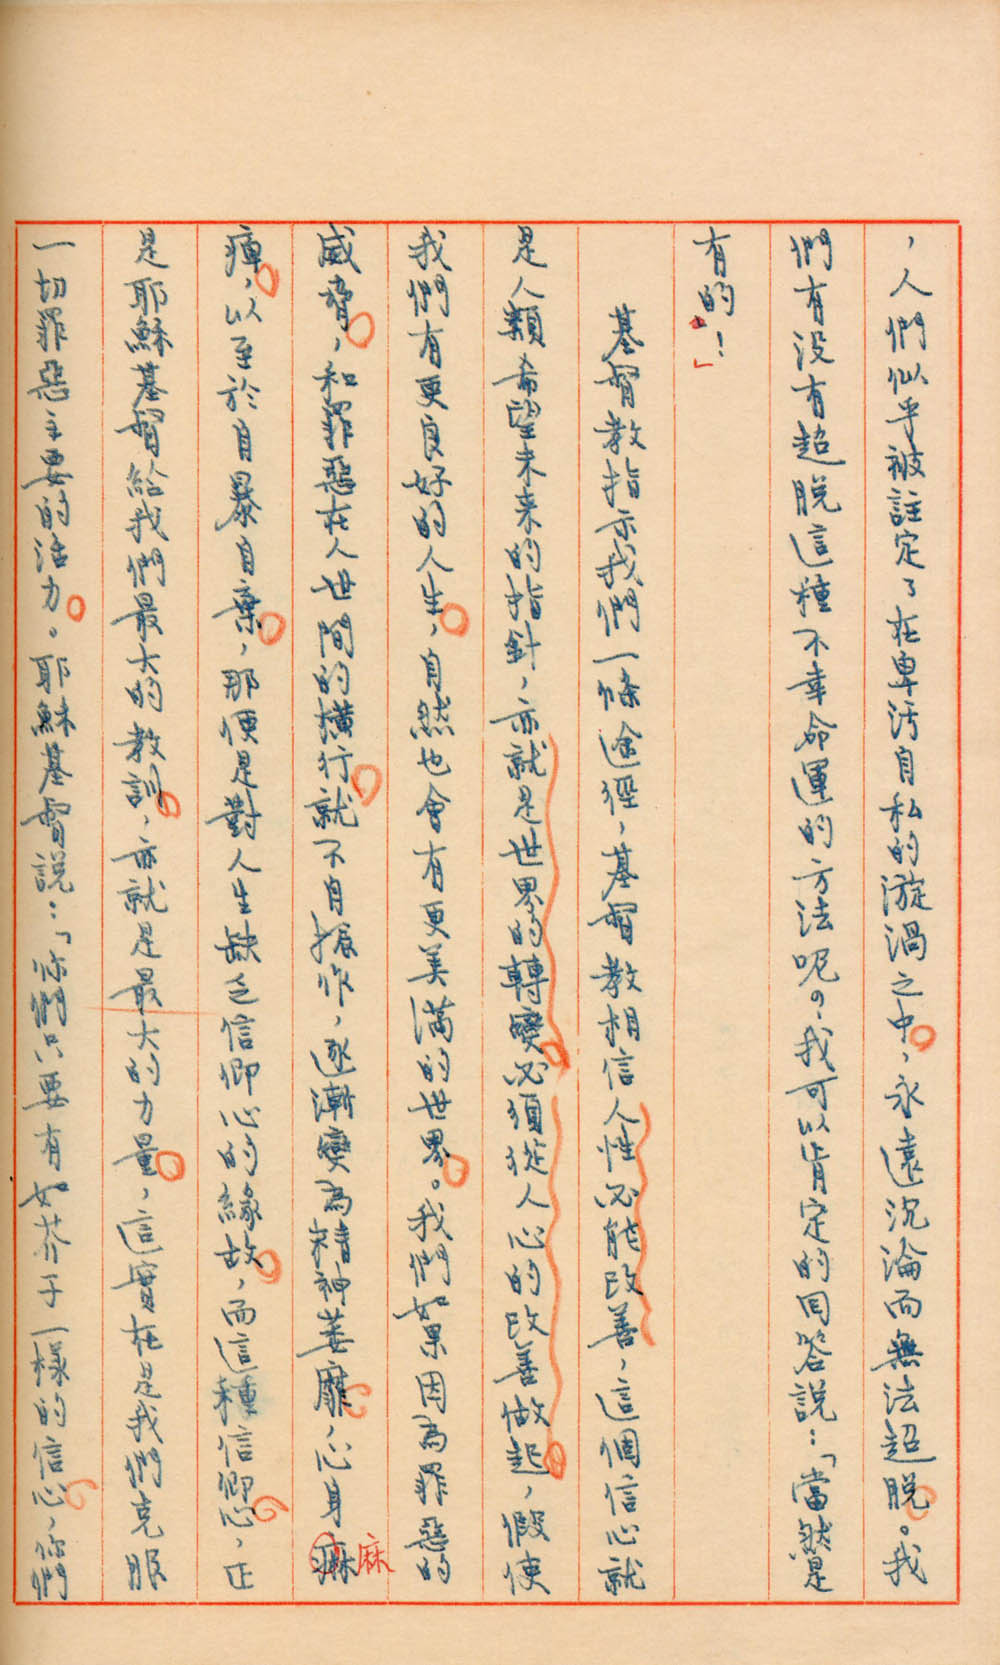 ，人們似乎被註定了在卑污自私的漩渦之中，永遠沉淪而無法超脫。我
們有没有超脫這種不幸命運的方法呢？我可以肯定的回答說：「當然是
有的！」
基督教指示我們一條途徑，基督教相信人性必能改善，這個信心就
是人類希望未來的指針，亦就是世界的轉變必須從人心的改善做起，假使
我們有更良好的人生，自然也會有更美滿的世界。我們如果因為罪惡的
威脅，和罪惡在人世間的橫行就不自振作，逐漸變為精神萎靡，心身痳麻
痺，以至於自暴自棄，那便是對人生缺乏信仰心的緣故，而這種信仰心，正
是耶穌基督給我們最大的教訓，亦就是最大的力量，這實在是我們克服
一切罪惡主要的活力。耶穌基督說：「你們只要有如芥子一樣的信心，你們